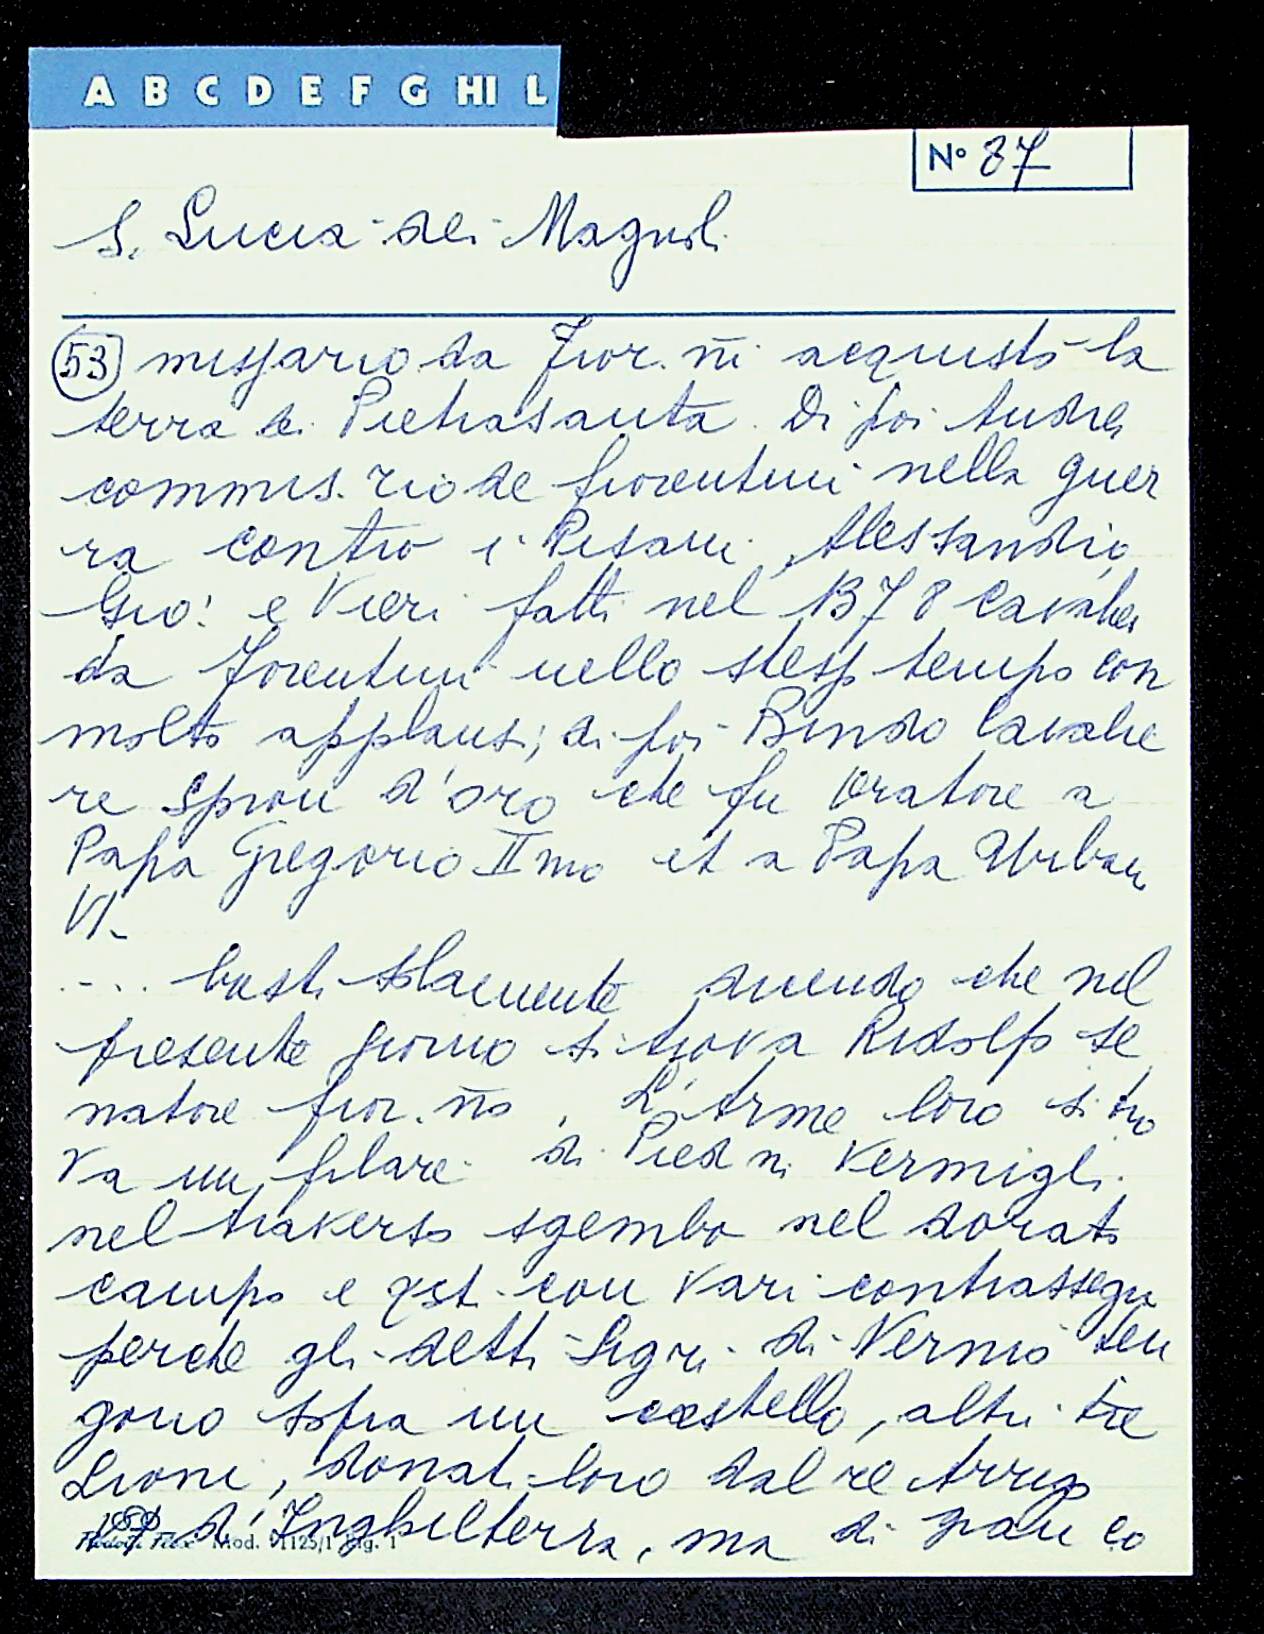 A B C D E F G HI L
N° 87
S. Lucia dei Magnoli
53 missario da Fior.ni acquistò la
terra di Pietrasanta. Di poi Andrea
commis.rio de fiorentini nella guer
ra contro i Pisani, Alessandro,
Gio: e Vieri fatti nel 1378 Cavalieri
da fiorentini nello stesso tempo con
molto applauso; di poi Bindo Cavalie
re spron d'oro che fu oratore a
Papa Gregorio IImo et a Papa Urbano
VI.
.... basti solamente dicendo che nel
presente giorno si trova Ridolfo se
natore fior.no. L'Arme loro si tro
va un filare di Piedni vermigli
nel traverso sgembo nel dorato
campo e qsti con vari contrassegni
perche gli detti Sigri di Vernio ten
gono sopra un castello, altri tre
Leoni, donati loro dal re Arrigo
d'Inghilterra, ma di gran co
Mod. 1125/1 Pag. 1